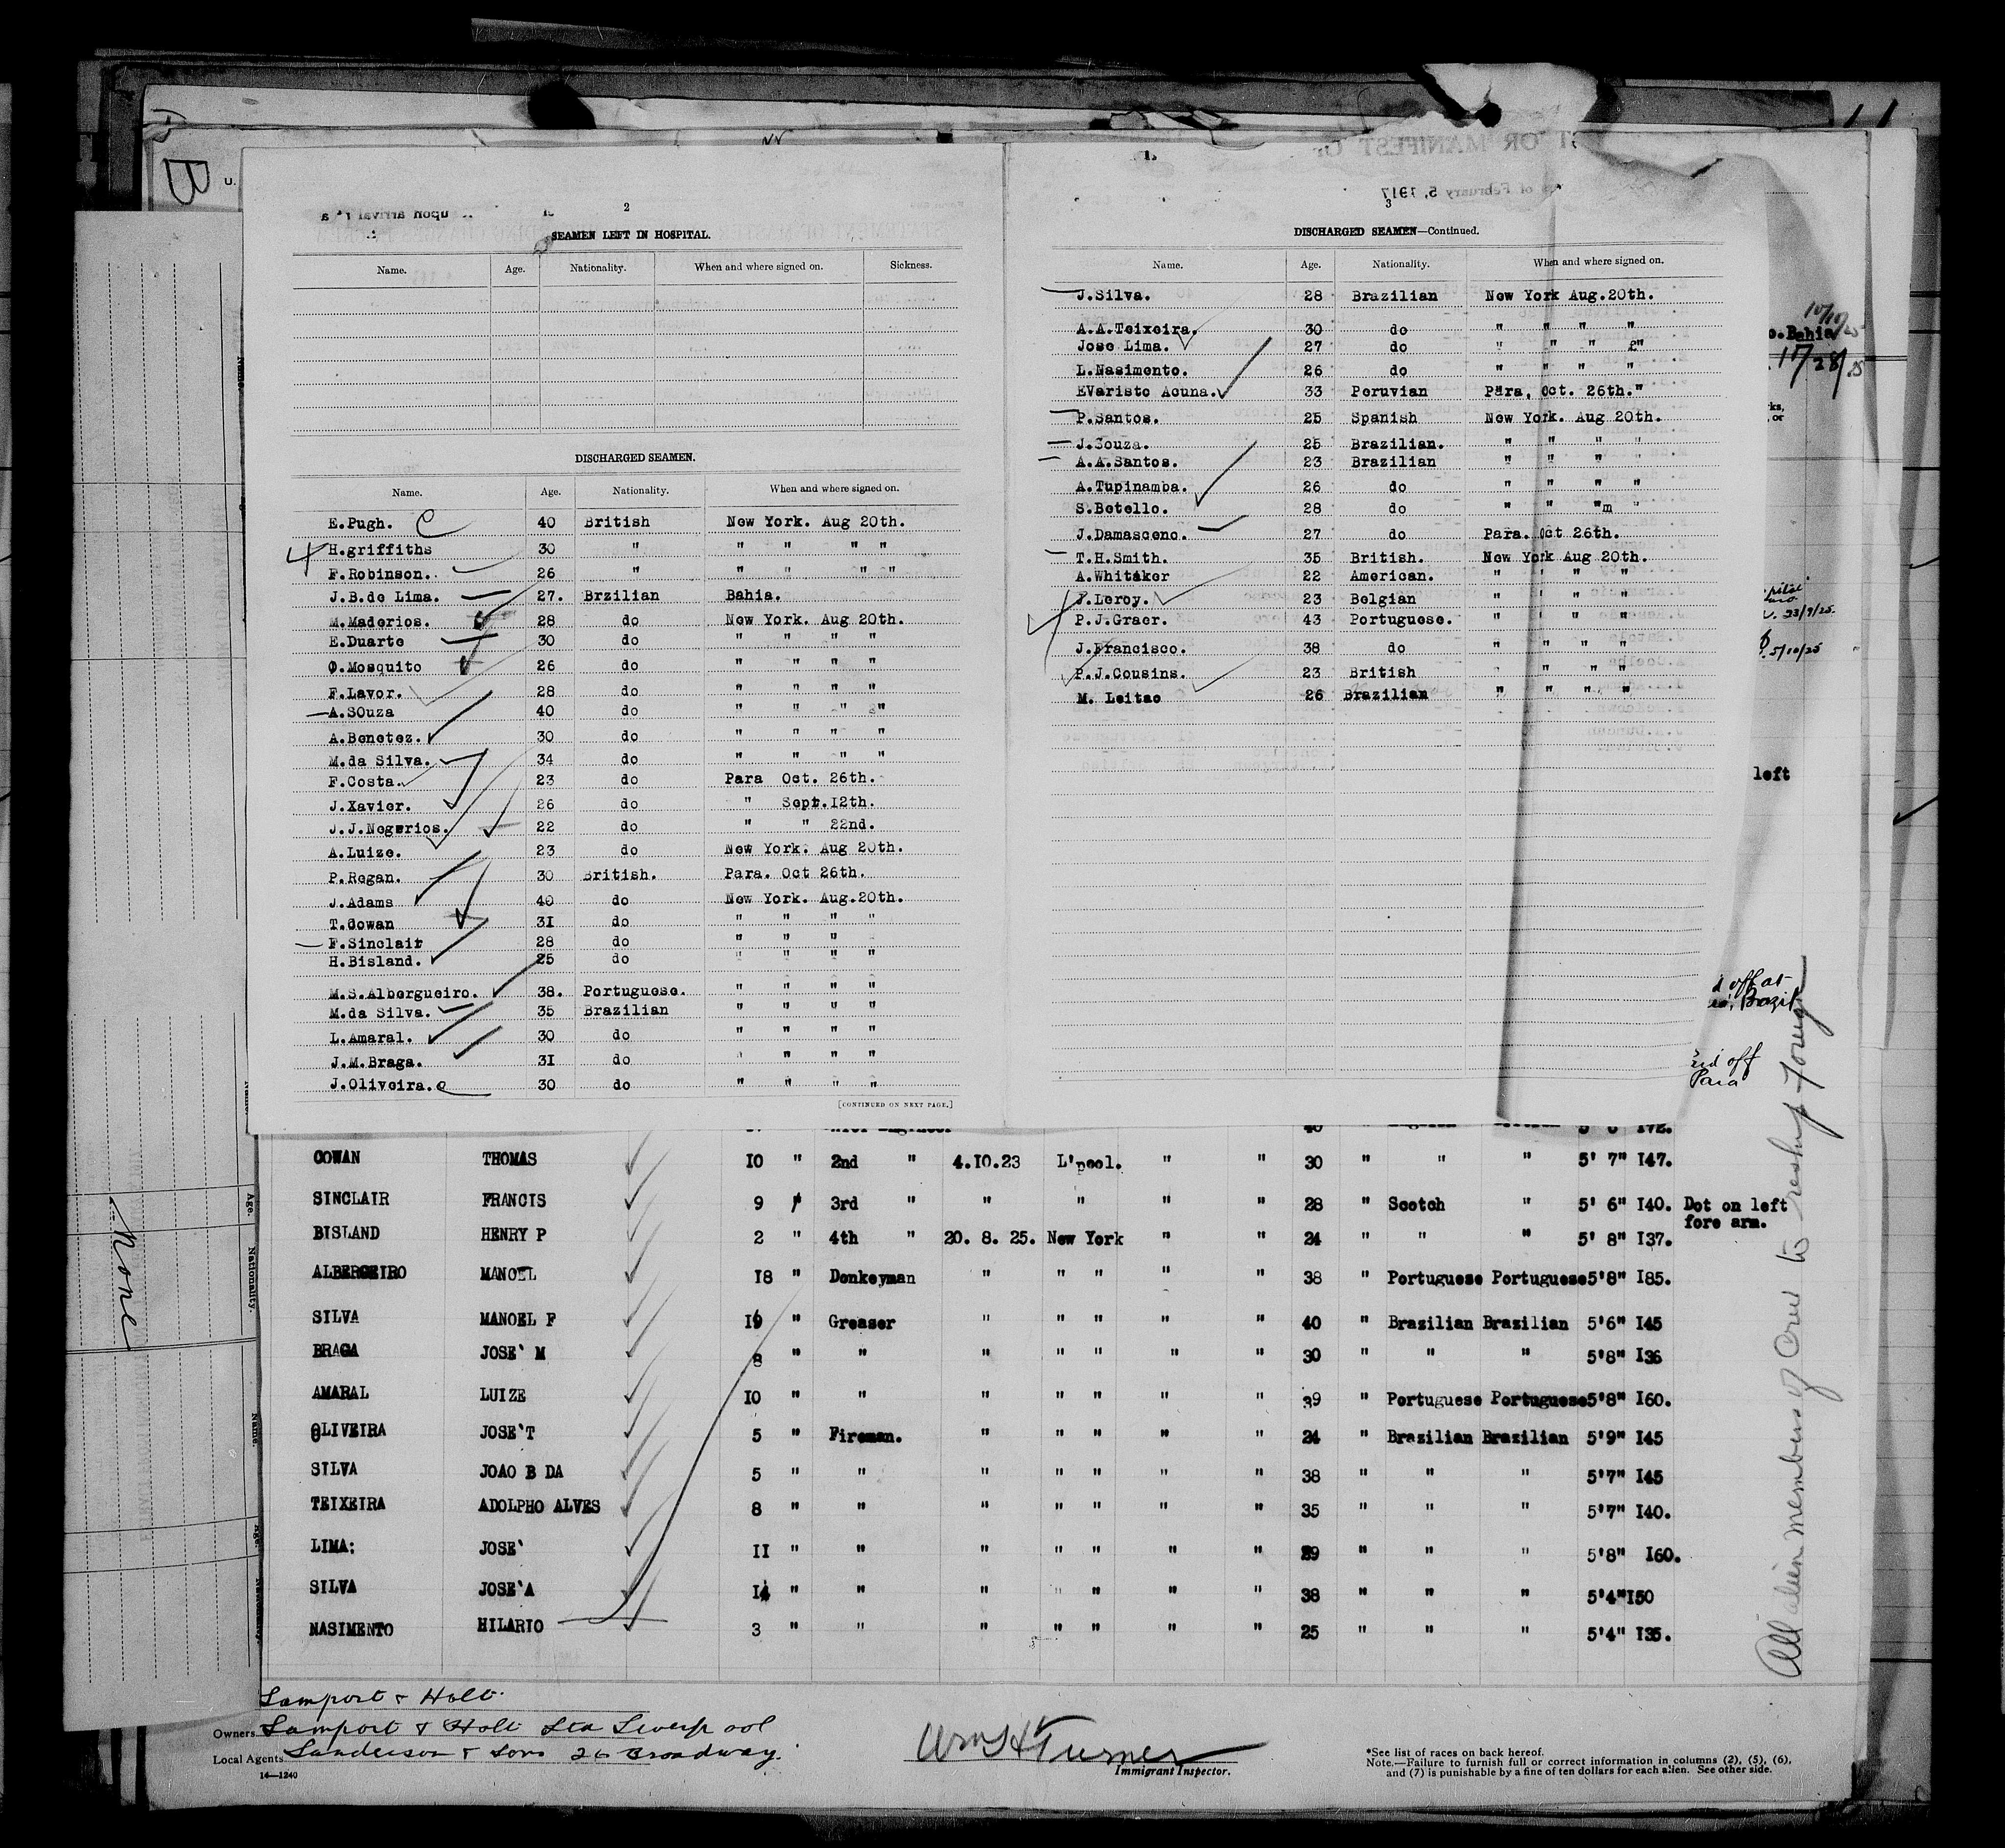 2
SEAMEN LEFT IN HOSPITAL.
Name. Age. Nationality. When and where signed on. Sickness.
DISCHARGED SEAMEN.
Name. Age. Nationality. When and where signed on.
E.Pugh. 40 British New York. Aug 20th.
H.griffiths 30 " " " " "
F.Robinson. 26 " " " " "
J.B.de Lima. 27. Brzilian Bahia.
M.Maderios. 28 do New York. Aug 20th.
E.Duarte 30 do " " " "
O.Mosquito 26 do " " " "
F.Lavor. 28 do " " " "
A.SOuza 40 do " " " "
A.Benetez. 30 do " " " "
M.da Silva. 34 do " " " "
F.Costa. 23 do Para Oct. 26th.
J.Xavier. 26 do " Sept.I2th.
J.J.Negerios. 22 do " " 22nd.
A.Luize. 23 do New York. Aug 20th.
P.Regan. 30 British. Para. Oct 26th.
J.Adams 40 do New York. Aug.20th.
T.Cowan 3I do " " " "
F.Sinclair 28 do " " "
H.Bisland. 25 do " " " "
M.S.Albergueiro. 38. Portuguese. " " " "
M.da Silva. 35 Brazilian " " " "
L.Amaral. 30 do " " " "
J.M.Braga. 3I do " " " "
J.Oliveira. 30 do " " " "
[CONTINUED ON NEXT PAGE.]
3
DISCHARGED SEAMEN—Continued.
Name. Age. Nationality. When and where signed on.
J.Silva. 28 Brazilian New York Aug.20th.
A.A.Teixeira. 30 do " " " "
Jose Lima. 27 do " " " "
L.Nasimento. 26 do " " " "
EVaristo Acuna. 33 Peruvian Para, Oct. 26th."
P.Santos. 25 Spanish New York. Aug 20th.
J.Souza. 25 Brazilian. " " " "
A.A.Santos. 23 Brazilian " " " "
A.Tupinamba. 26 do " " " "
S.Botello. 28 do " " "m "
J.Damasceno. 27 do Para. Oct 26th.
T.H.Smith. 35 British. New York Aug 20th.
A.Whitaker 22 American. " " " "
Leroy. 23 Belgian " " " "
P.J.Graer. 43 Portuguese. " " " "
J.Francisco. 38 do " " " "
P.J.Cousins. 23 British " " " "
M. Leitao 26 Brazilian " " " "
o.Bahia
17/28/25
23/9/25.
5/10/25
left
off at
Brazil
off
Para
None
COWAN THOMAS I0 " 2nd " 4.I0.23 L'pool. " " 30 " " " 5' 7" I47.
SINCLAIR FRANCIS 9 " 3rd " " " " " 28 " Scotch " 5' 6" I40. Dot on left
fore arm.
BISLAND HENRY P 2 " 4th " 20. 8. 25. New York " " 24 " " " 5' 8" I37.
ALBERGEIRO MANOEL I8 " Donkeyman " " " " " 38 " Portuguese Portuguese5'8" I85.
SILVA MANOEL F I9 " Greaser " " " " " 40 " Brasilian Brasilian 5'6" I45
BRAGA JOSE' M 8 " " " " " " " 30 " " " 5'8" I36
AMARAL LUIZE I0 " " " " " " " 39 " Portuguese Portuguese5'8" I60.
OLIVEIRA JOSE'T 5 " Fireman. " " " " " 24 " Brasilian Brasilian 5'9" I45
SILVA JOAO B DA 5 " " " " " " " 38 " " " 5'7" I45
TEIXEIRA ADOLPHO ALVES 8 " " " " " " " 35 " " " 5'7" I40.
LIMA: JOSE' II " " " " " " " 29 " " " 5'8" I60.
SILVA JOSE'A I4 " " " " " " " 38 " " " 5'4"I50
NASIMENTO HILARIO 3 " " " " " " " 25 " " " 5'4" I35.
All alien members of Crew to reship foreign
Lamport & Holt.
Owners Lamport & Holt Ltd Liverpool
Local Agents Sanderson & Sons 26 Broadway.
14—1240
Wm H Turner
Immigrant Inspector.
*See list of races on back hereof.
Note.—Failure to furnish full or correct information in columns (2), (5), (6),
and (7) is punishable by a fine of ten dollars for each alien. See other side.